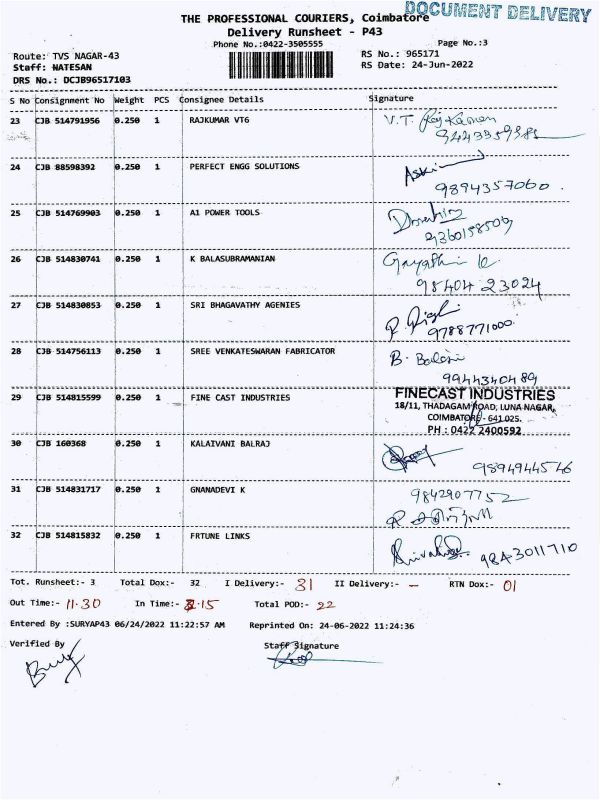 DOCUMENT DELIVERY
THE PROFESSIONAL COURIERS, Coimbatore
Delivery Runsheet - P43
Phone No.:0422-3505555 Page No.:3
Route: TVS NAGAR-43 RS No.: 965171
Staff: NATESAN RS Date: 24-Jun-2022
DRS No.: DCJB96517103
S No Consignment No Weight PCS Consignee Details Signature
23 CJB 514791956 0.250 1 RAJKUMAR VT6 V.T.
24 CJB 88598392 0.250 1 PERFECT ENGG SOLUTIONS
9894357060.
25 CJB 514769903 0.250 1 A1 POWER TOOLS
9360158509
26 CJB 514830741 0.250 1 K BALASUBRAMANIAN Gayathri K
98404 23024
27 CJB 514830853 0.250 1 SRI BHAGAVATHY AGENIES
9788771000
28 CJB 514756113 0.250 1 SREE VENKATESWARAN FABRICATOR B. Balaji
9944340489
29 CJB 514815599 0.250 1 FINE CAST INDUSTRIES FINECAST INDUSTRIES
18/11, THADAGAM ROAD, LUNA NAGAR,
COIMBATORE - 641 025.
PH : 0422 2400592
30 CJB 160368 0.250 1 KALAIVANI BALRAJ
9894944546
31 CJB 514831717 0.250 1 GNANADEVI K 9842907752
32 CJB 514815832 0.250 1 FRTUNE LINKS 9843011710
Tot. Runsheet:- 3 Total Dox:- 32 I Delivery:- 31 II Delivery:- - RTN Dox:- 01
Out Time:- 11.30 In Time:- 2.15 Total POD:- 22
Entered By :SURYAP43 06/24/2022 11:22:57 AM Reprinted On: 24-06-2022 11:24:36
Verified By Staff Signature